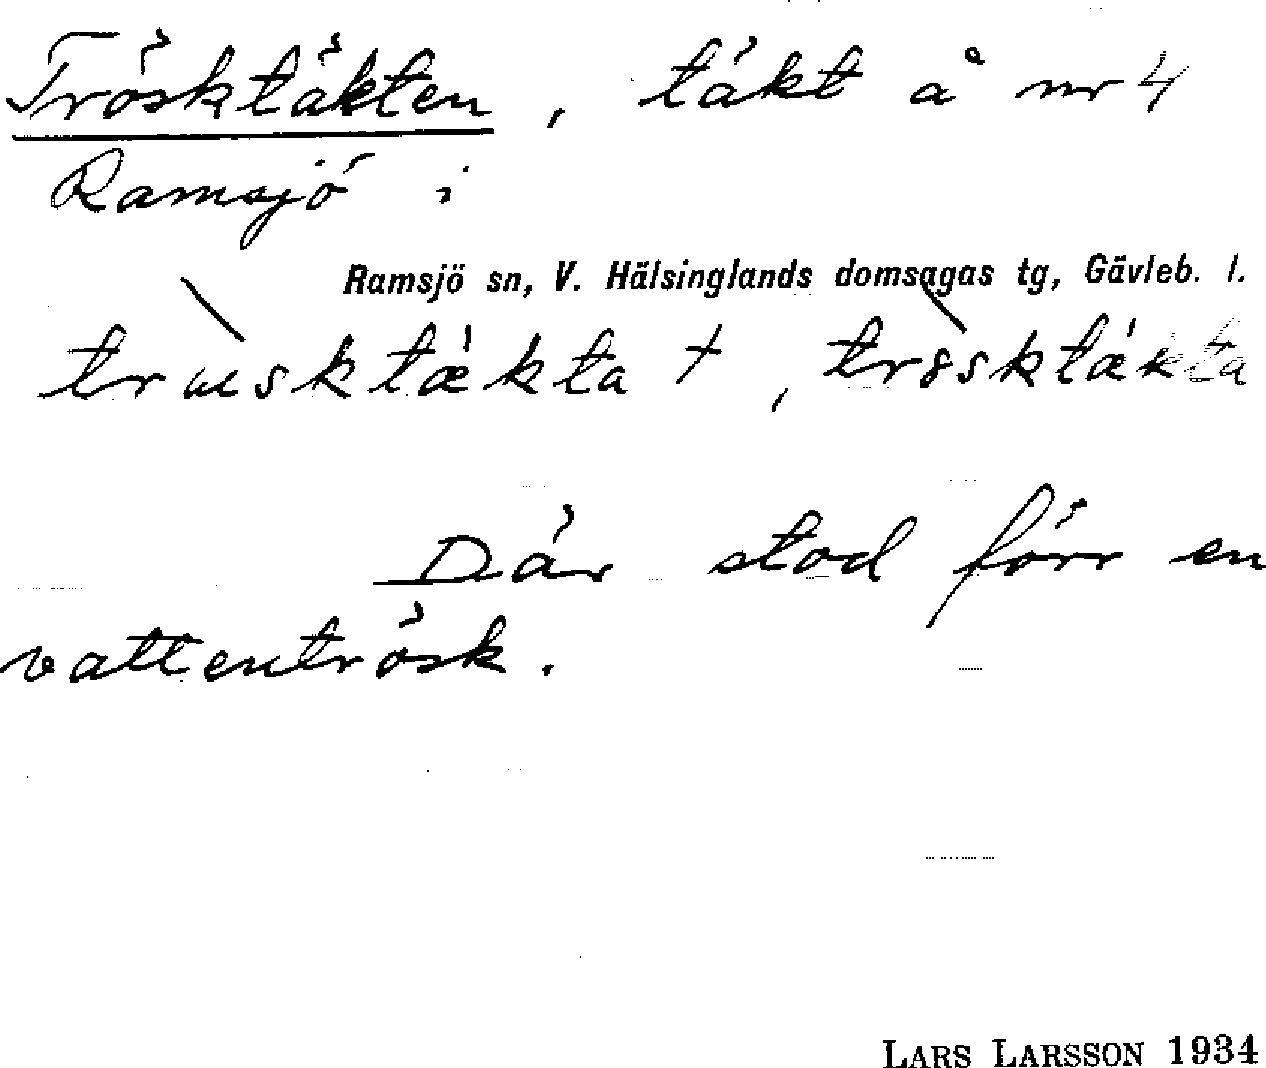 Trösktäkten, täkt å nr 4
Ramsjö i
Ramsjö sn, V. Hälsinglands domsagas tg, Gävleb. l.
trùsktǽkta †, trỏ̀sktǽkta
Där stod förr en
vattentrösk.
LARS LARSSON 1934